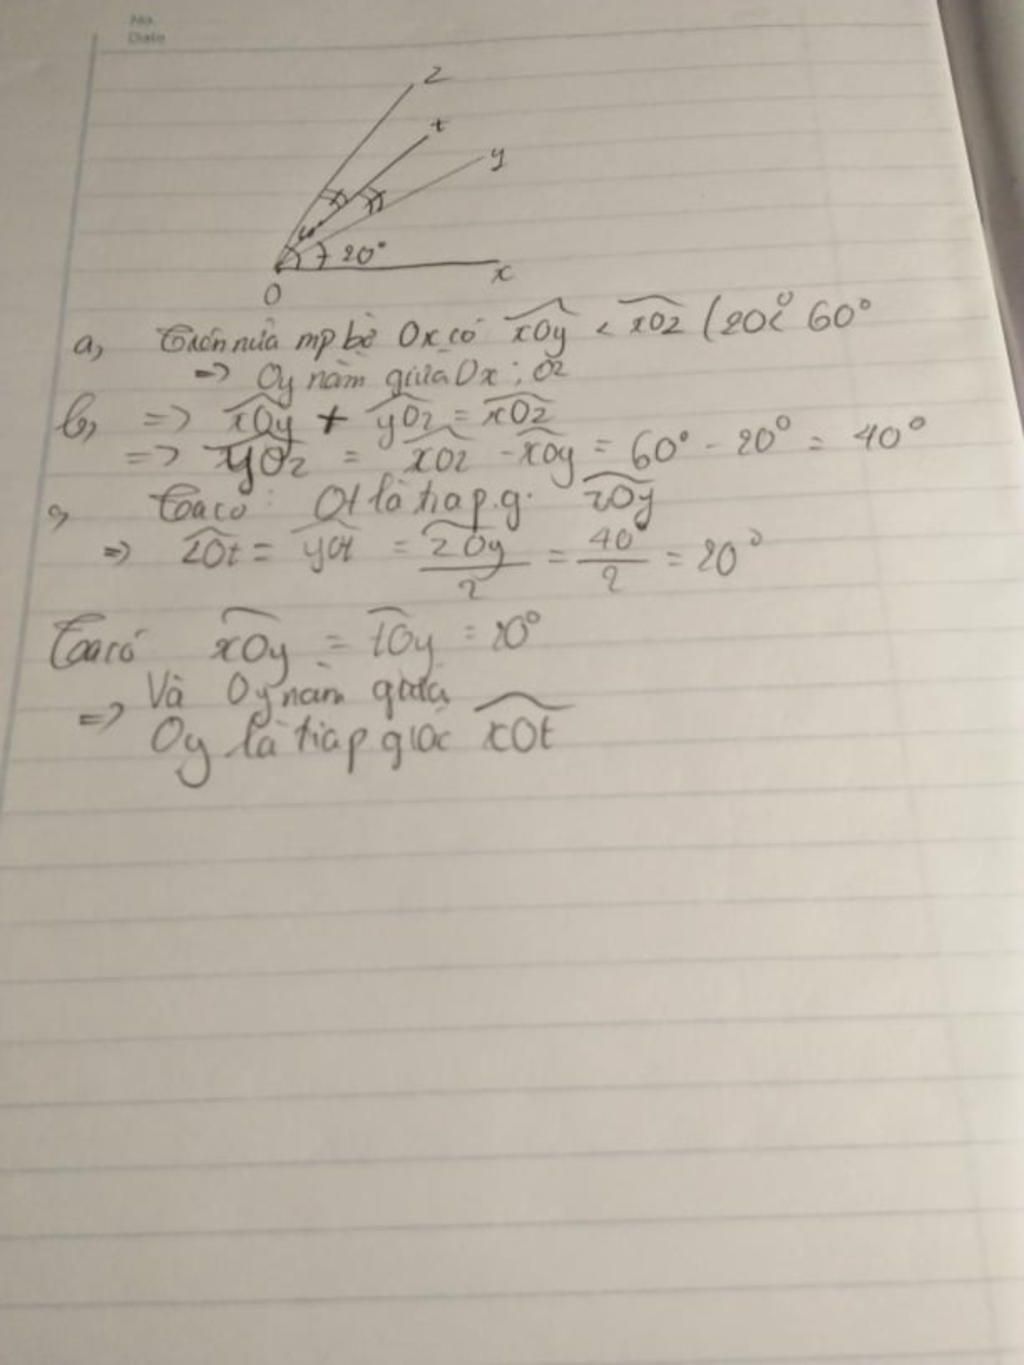 No.
Date
z
t
y
20°
x
O
a, Trên nửa mp bờ Ox có xOy < xOz (20° < 60°
=> Oy nằm giữa Ox ; Oz
b, => xOy + yOz = xOz
=> yOz = xOz - xOy = 60° - 20° = 40°
c, Ta có : Ot là tia p.g. zOy
=> zOt = yOt = zOy/2 = 40°/2 = 20°
Ta có xOy = tOy = 20°
Và Oy nằm giữa
=> Oy là tia p giác xOt